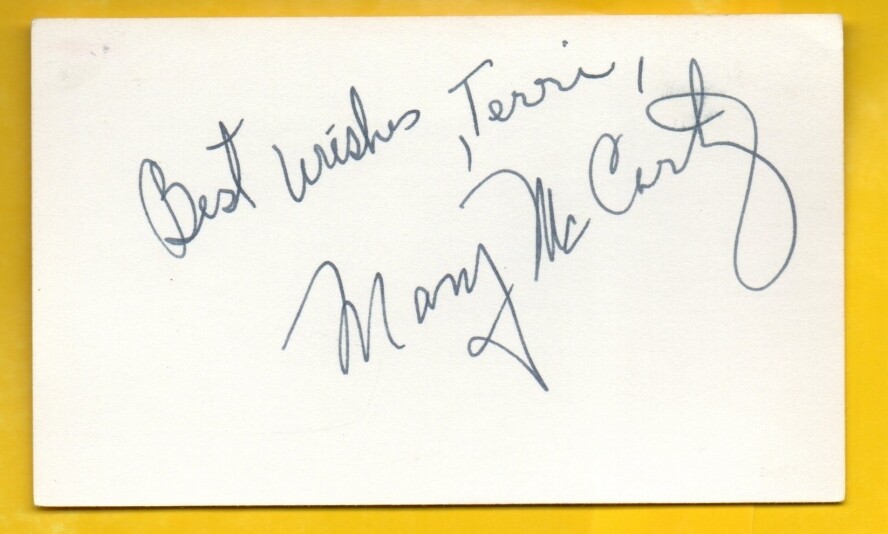 Best Wishes, Terri,
Mary McCarty